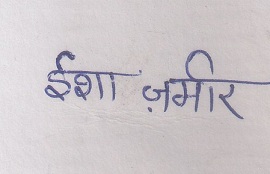 ईशा ज़मीर